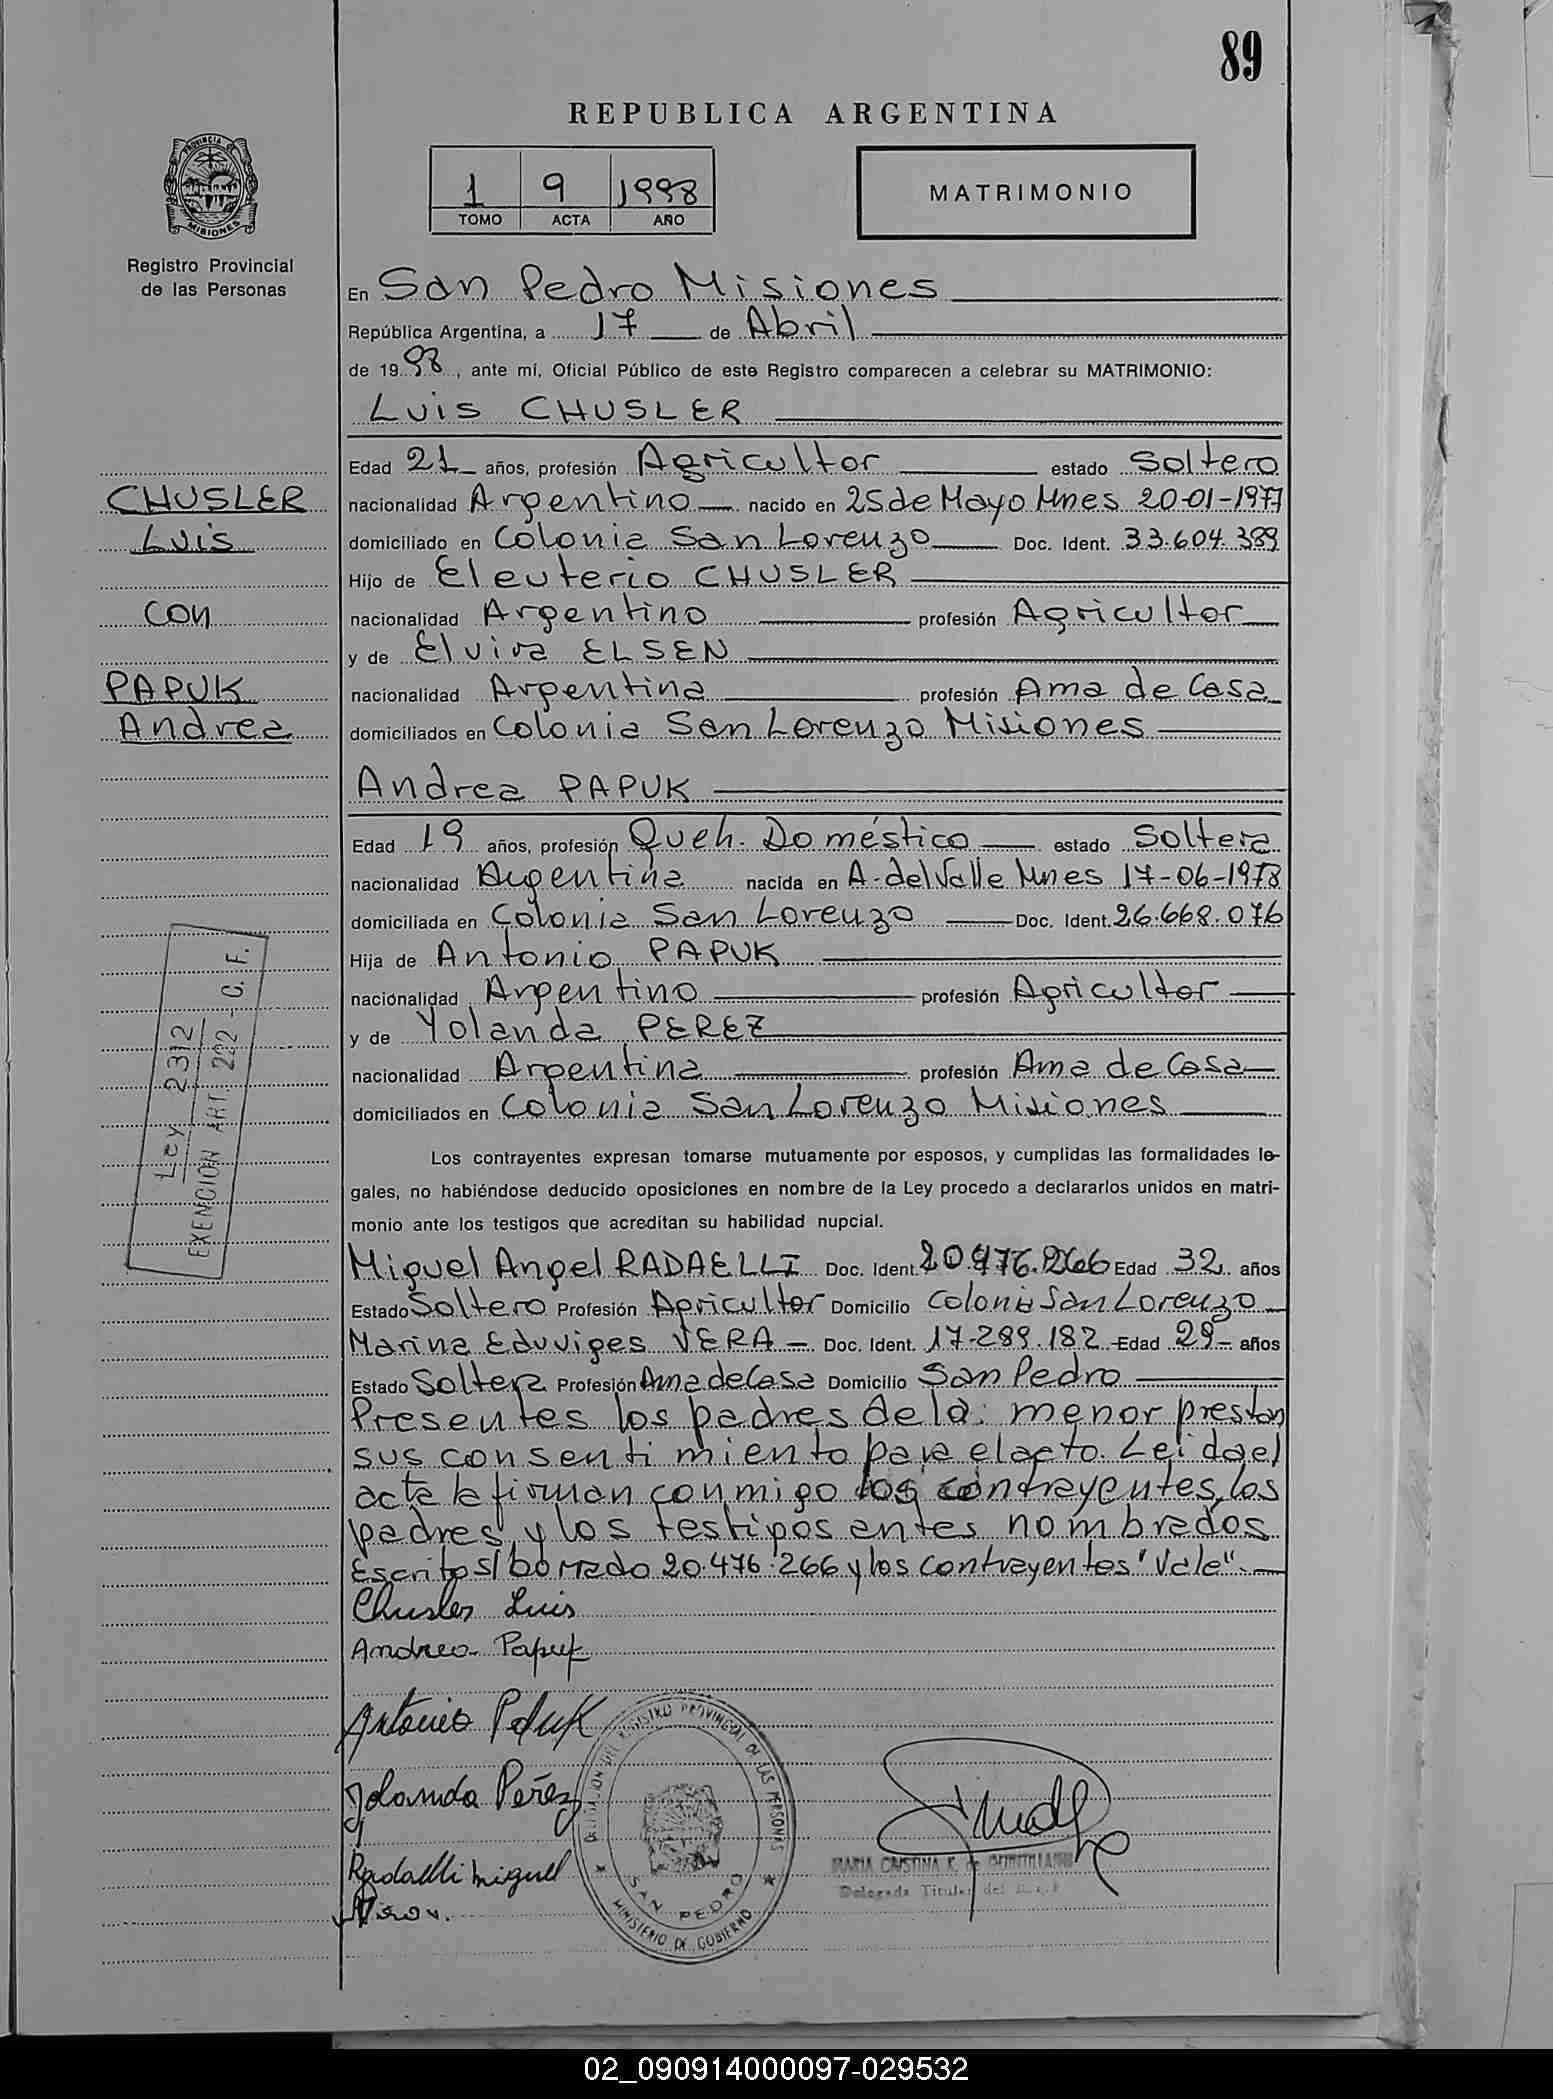 89
REPUBLICA ARGENTINA
1 9 1998
TOMO ACTA AÑO
MATRIMONIO
PROVINCIA DE MISIONES
Registro Provincial
de las Personas
En San Pedro Misiones
República Argentina, a 17 de Abril
de 1998, ante mí, Oficial Público de este Registro comparecen a celebrar su MATRIMONIO:
Luis CHUSLER
Edad 21 años, profesión Agricultor estado Soltero
nacionalidad Argentino nacido en 25 de Mayo Mnes 20-01-1977
domiciliado en Colonia San Lorenzo Doc. Ident. 33.604.389
Hijo de Eleuterio CHUSLER
nacionalidad Argentino profesión Agricultor
y de Elvira ELSEN
nacionalidad Argentina profesión Ama de Casa
domiciliados en Colonia San Lorenzo Misiones
CHUSLER
Luis
con
PAPUK
Andrea
Andrea PAPUK
Edad 19 años, profesión Queh. Doméstico estado Soltera
nacionalidad Argentina nacida en A. del Valle Mnes 17-06-1978
domiciliada en Colonia San Lorenzo Doc. Ident. 26.668.076
Hija de Antonio PAPUK
nacionalidad Argentino profesión Agricultor
y de Yolanda PEREZ
nacionalidad Argentina profesión Ama de Casa
domiciliados en Colonia San Lorenzo Misiones
Ley 2312
EXENCION ART. 222 - C. F.
Los contrayentes expresan tomarse mutuamente por esposos, y cumplidas las formalidades le-
gales, no habiéndose deducido oposiciones en nombre de la Ley procedo a declararlos unidos en matri-
monio ante los testigos que acreditan su habilidad nupcial.
Miguel Angel RADAELLI Doc. Ident. 20.476.266 Edad 32 años
Estado Soltero Profesión Agricultor Domicilio Colonia San Lorenzo
Marina Eduviges VERA - Doc. Ident. 17.289.182 - Edad 29 - años
Estado Soltera Profesión Ama de Casa Domicilio San Pedro
Presentes los padres de la: menor prestan
sus consentimiento para el acto. Leida el
acta la firman conmigo los contrayentes, los
padres, y los testigos antes nombrados
Escritos/borrado 20.476.266 y los contrayentes "Vale".
Chusler Luis
Andrea Papuk
Antonio Papuk
Yolanda Peréz
Radaelli Miguel
DELEGACION DEL REGISTRO PROVINCIAL DE LAS PERSONAS
SAN PEDRO
MINISTERIO DE GOBIERNO
MARIA CRISTINA K. de
Delegada Titular del
02_090914000097-029532